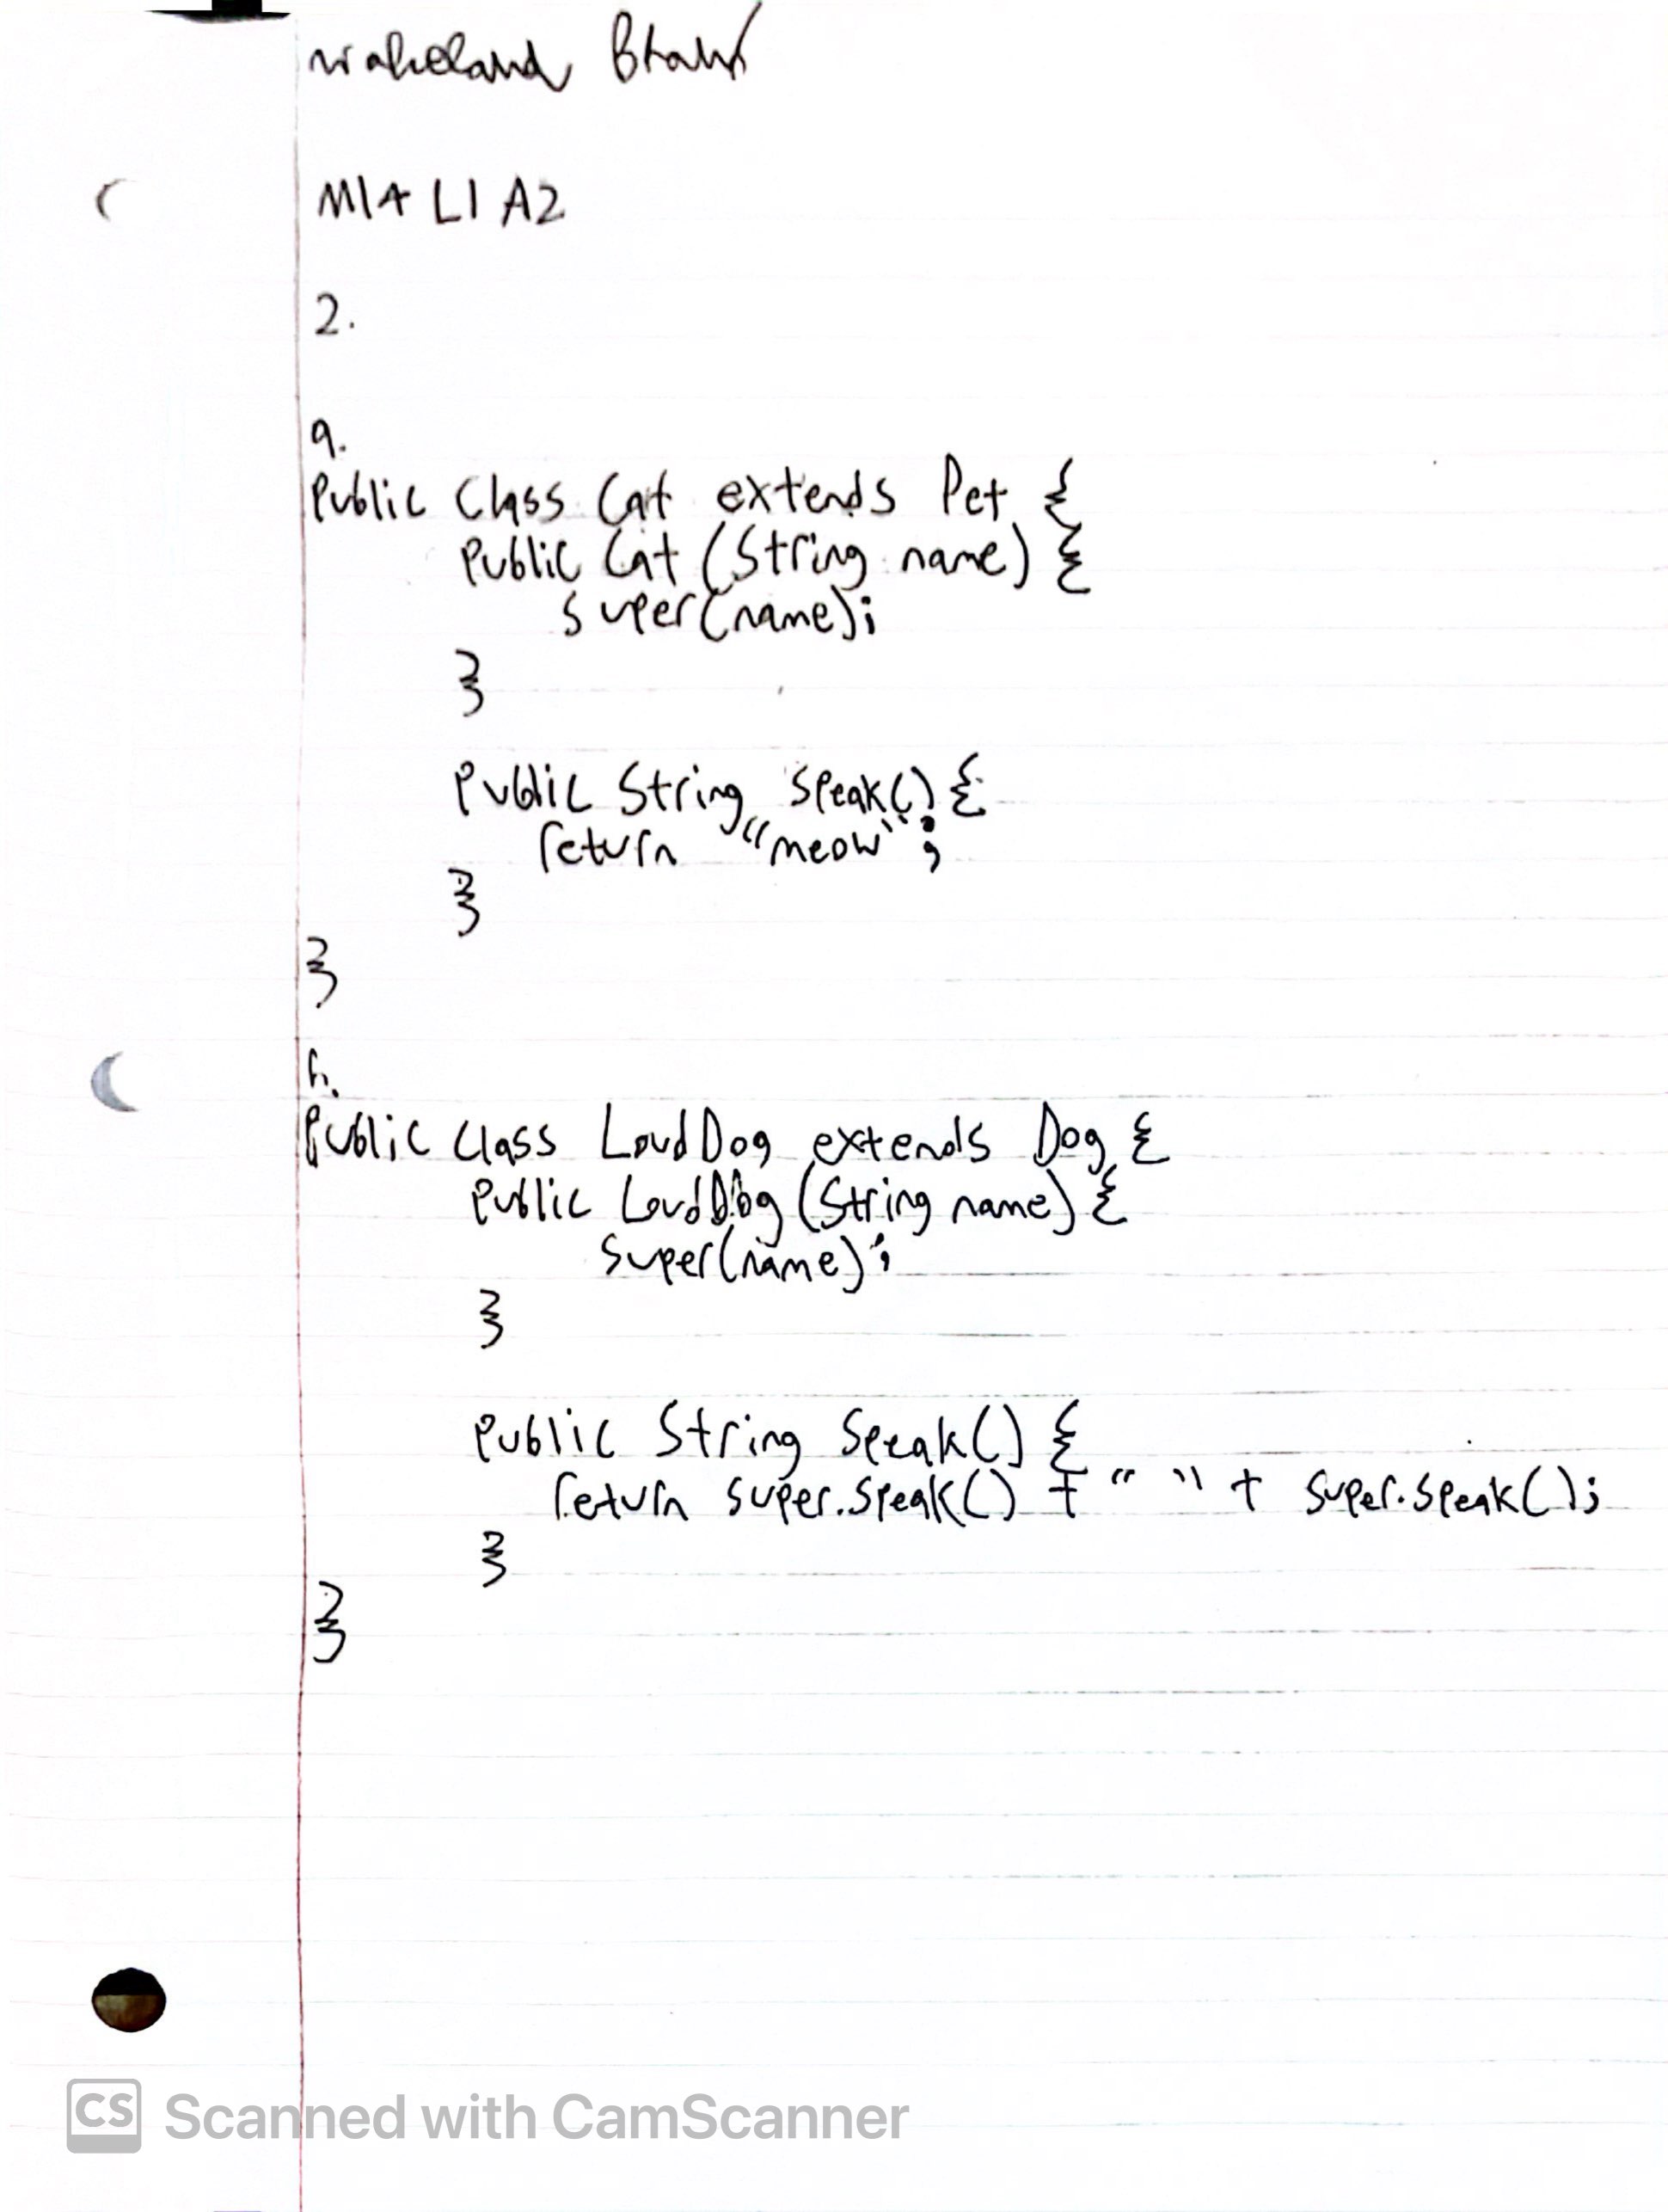 M14 L1 A2
2.
a.
Public Class Cat extends Pet {
Public Cat (String name) {
super(name);
}
Public String speak() {
return "meow";
}
}
b.
Public Class LoudDog extends Dog {
Public LoudDog (String name) {
super(name);
}
Public String Speak() {
return super.speak() + " " + super.speak();
}
}
CS Scanned with CamScanner